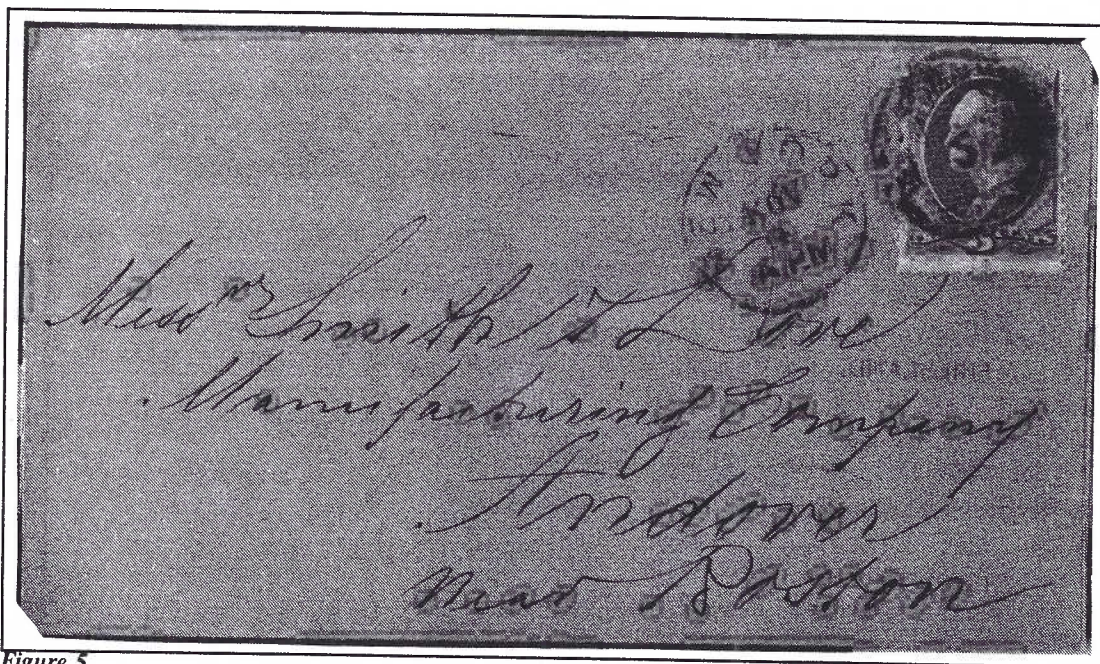 Mess^rs Smith & Love
Manufacturing Company
Andover
Near Boston
NOV
Figure 5